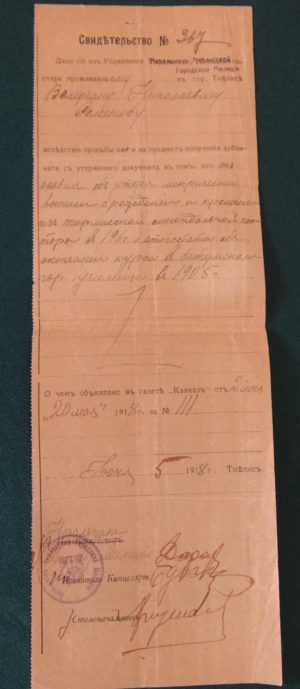 Свидетельство № 367
Дано сiе изъ Управленiя Начальника Тифлисской
Городской Милицiи
стера проживающему въ гор. Тифлисѣ
Валерiану Николаевичу
Семенову
вслѣдствiе просьбы его и на предметъ полученiя дубли-
ката съ утеряннаго документа въ томъ, что онъ
заявилъ объ утерѣ метрической
выписи о рожденiи и крещенiи
изъ тифлисской синодальной кон-
торы въ 190 г. и аттестата объ
окончанiи курса въ батумскомъ
гор. училищѣ въ 1905 г.
О чемъ объявлено въ газетѣ „Кавказъ" отъ
„20 мая" 1918 г. за № 111
Iюня 5 1918 г. Тифлисъ.
Начальника
Полицiймейстеръ
Милицiи
Правитель Канцелярiи
Столоначальникъ